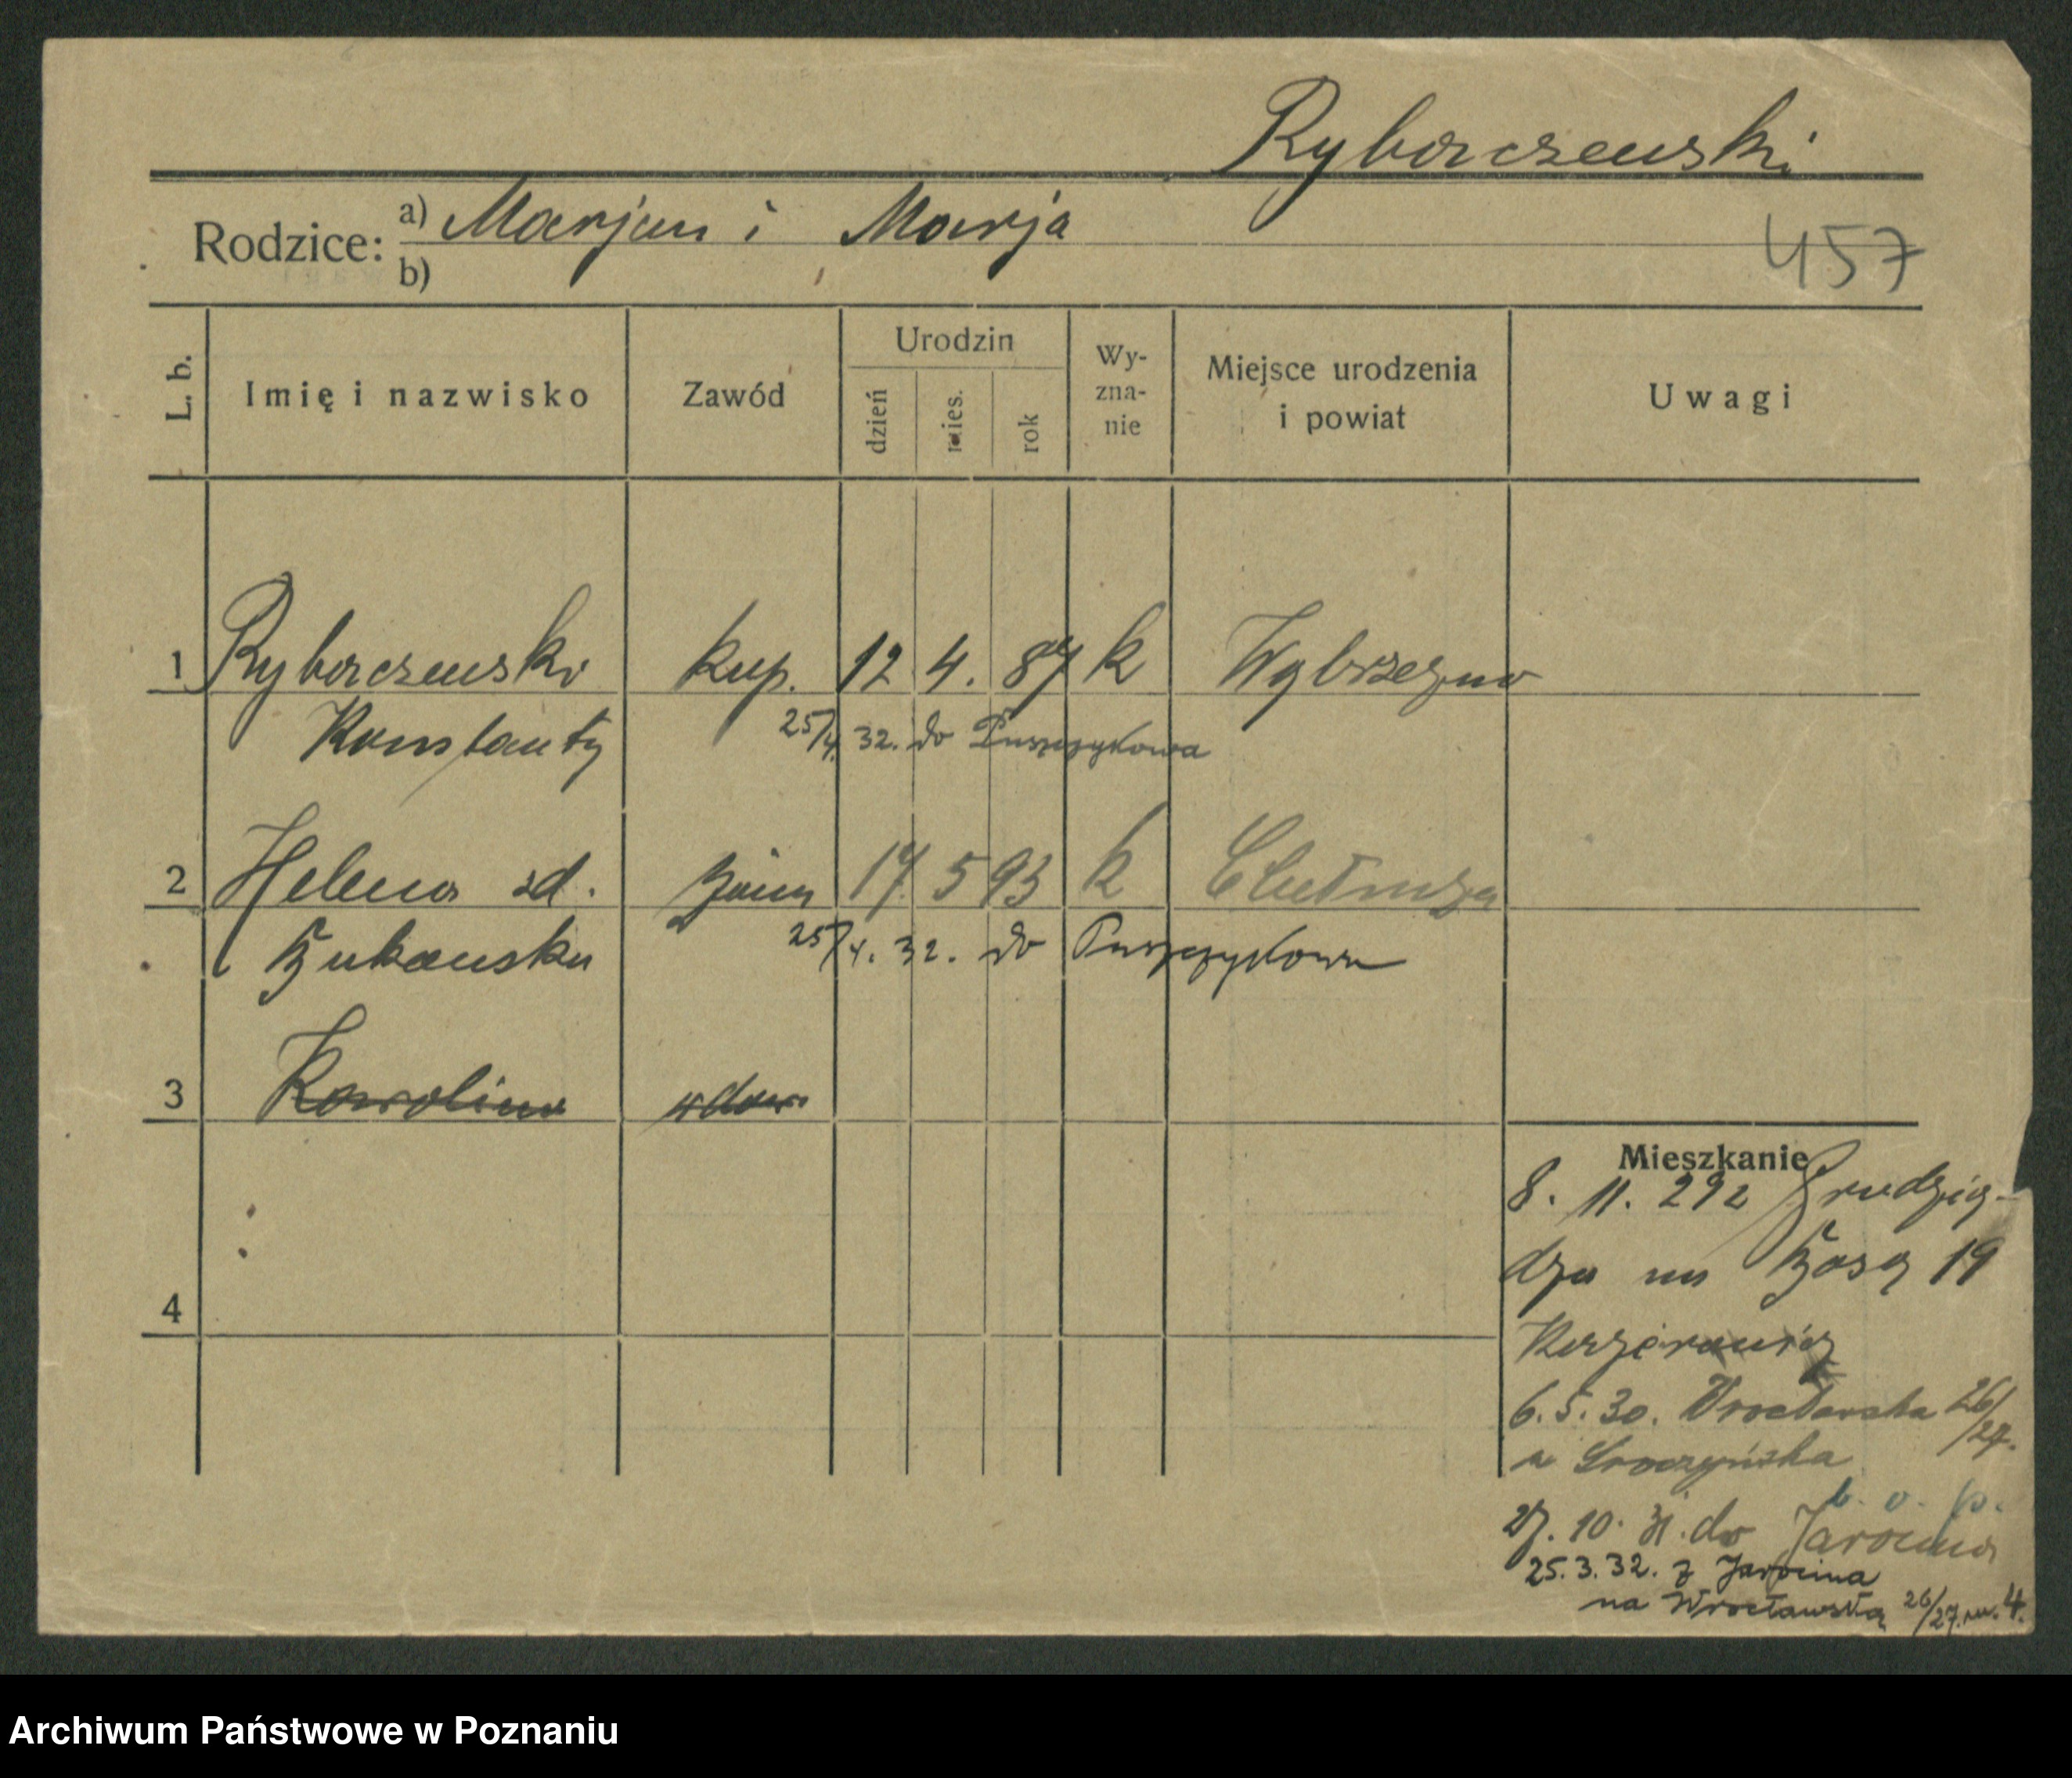 Ryborczewski
Rodzice: a) Marjan i Marja
b)
457
L. b.
Imię i nazwisko
Zawód
Urodzin
dzień
mies.
rok
Wy-
zna-
nie
Miejsce urodzenia
i powiat
Uwagi
1 Ryborczewski kup. 12 4. 87 k Wąbrzezno
Konstanty 25/4. 32. do Puszczykowa
2 Helena zd. żona 17 5 93 k Chełmża
25/4. 32. do Puszczykowa
3 Karolina wdow.
4
Mieszkanie
8. 11. 292 Grudzią-
dza na 19
6. 5. 30. Wrocławska 26/27.
u Sroczyńska
b. o. p.
27. 10. 31. do Jarocina
25. 3. 32. z Jarocina
na Wrocławską 26/27. m. 4.
Archiwum Państwowe w Poznaniu